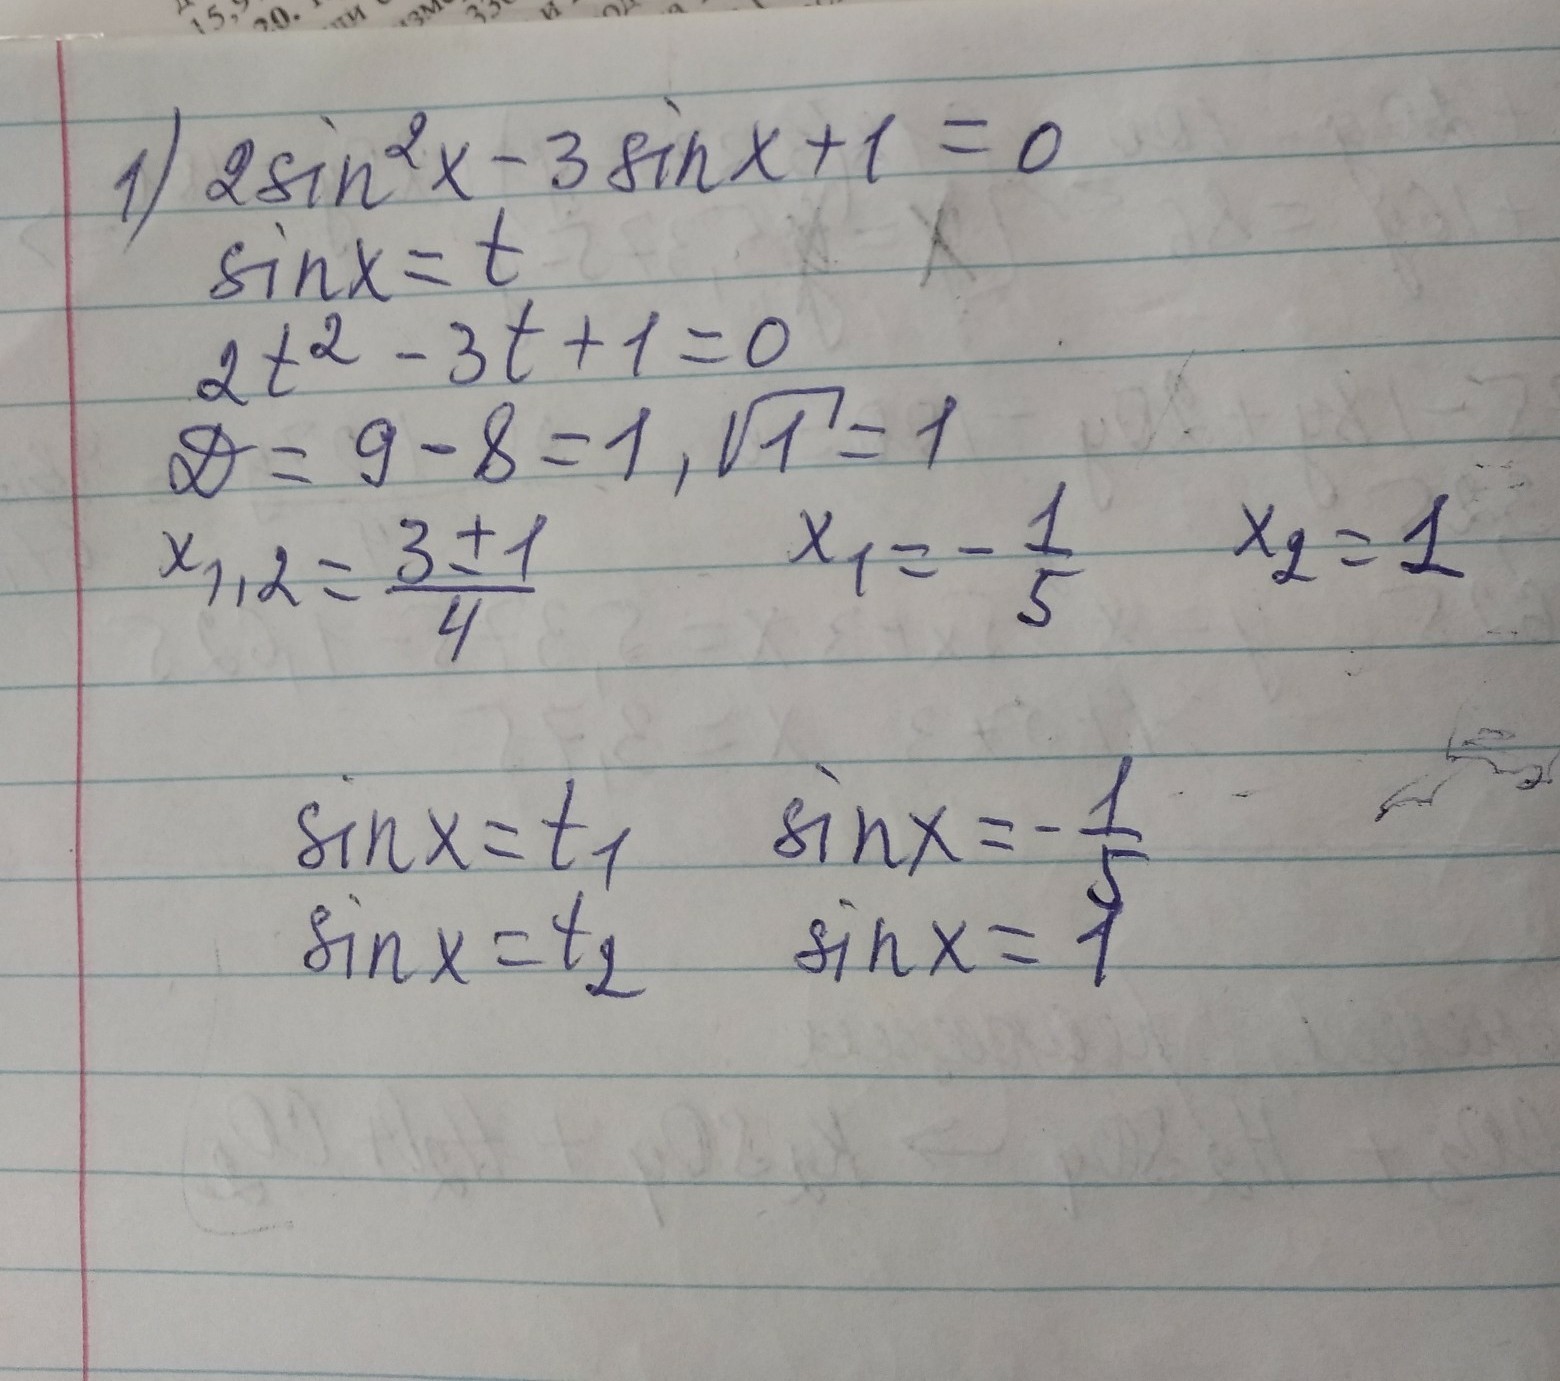 1) 2sin²x - 3sinx + 1 = 0
sinx = t
2t² - 3t + 1 = 0
D = 9 - 8 = 1, √1 = 1
x₁,₂ = (3 ± 1)/4 x₁ = -1/5 x₂ = 1
sinx = t₁ sinx = -1/5
sinx = t₂ sinx = 1